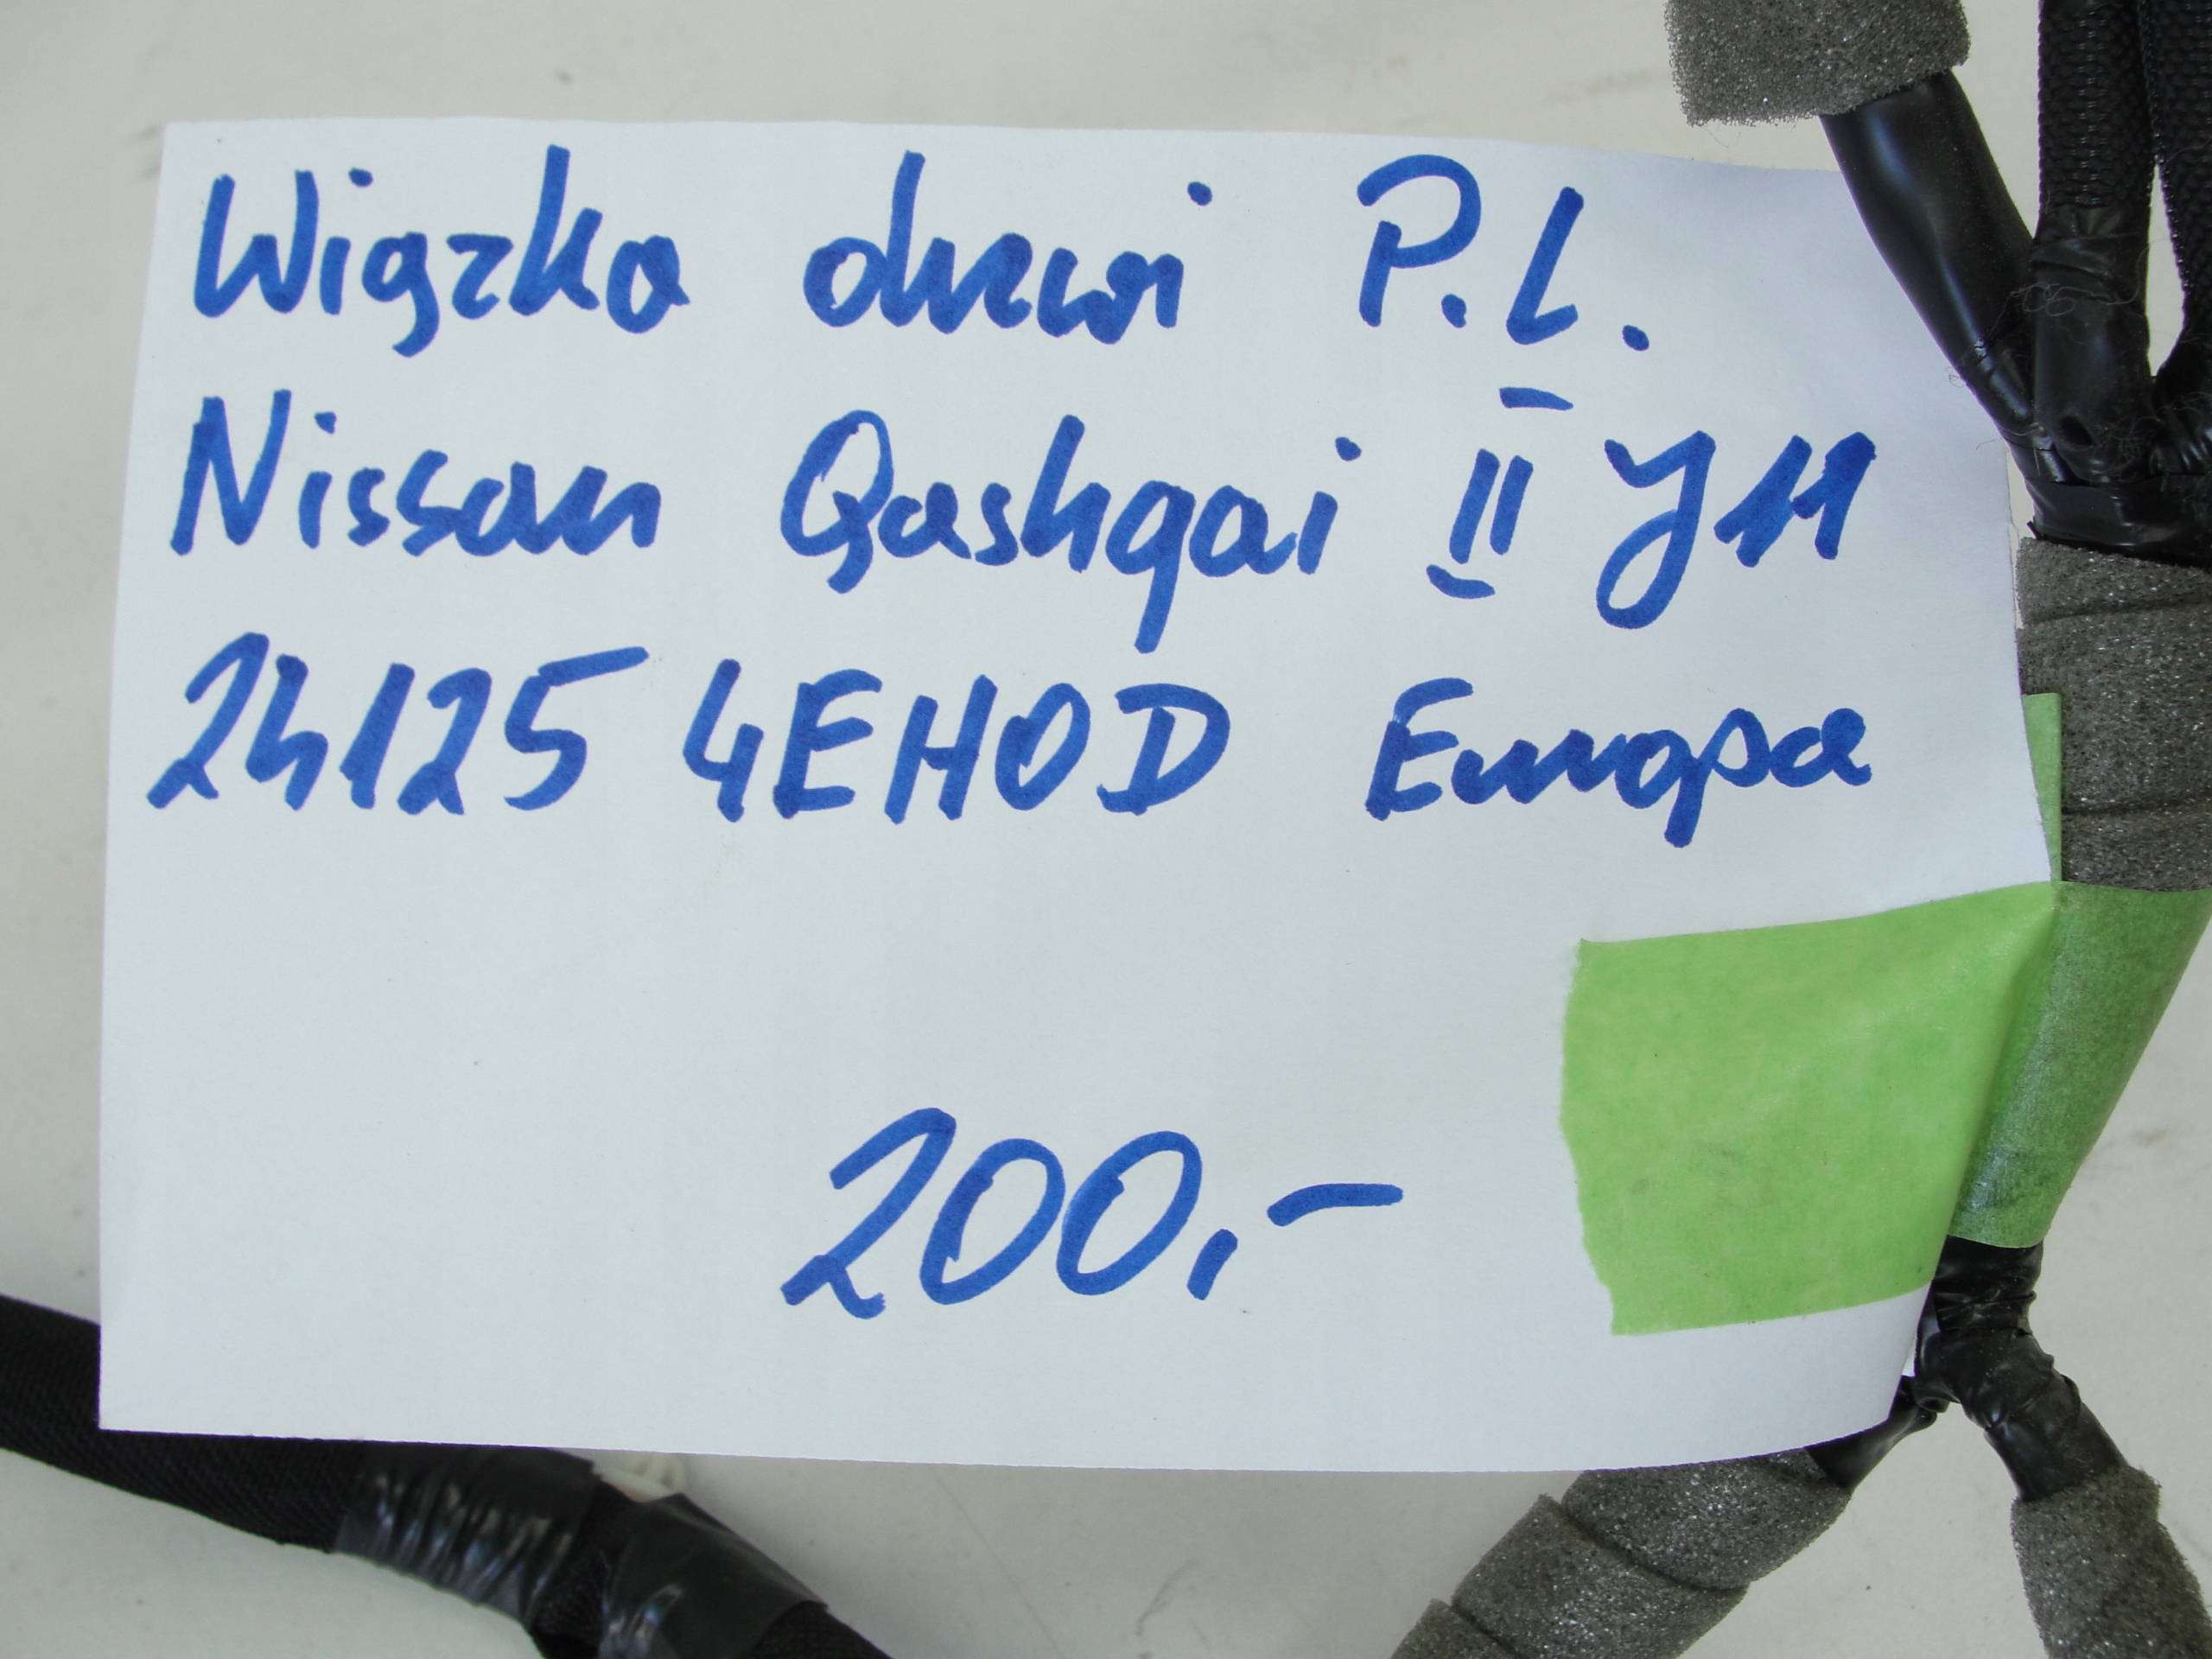 Wiązka drzwi P.L.
Nissan Qashqai II J11
24125 4EH0D Europa
200,-